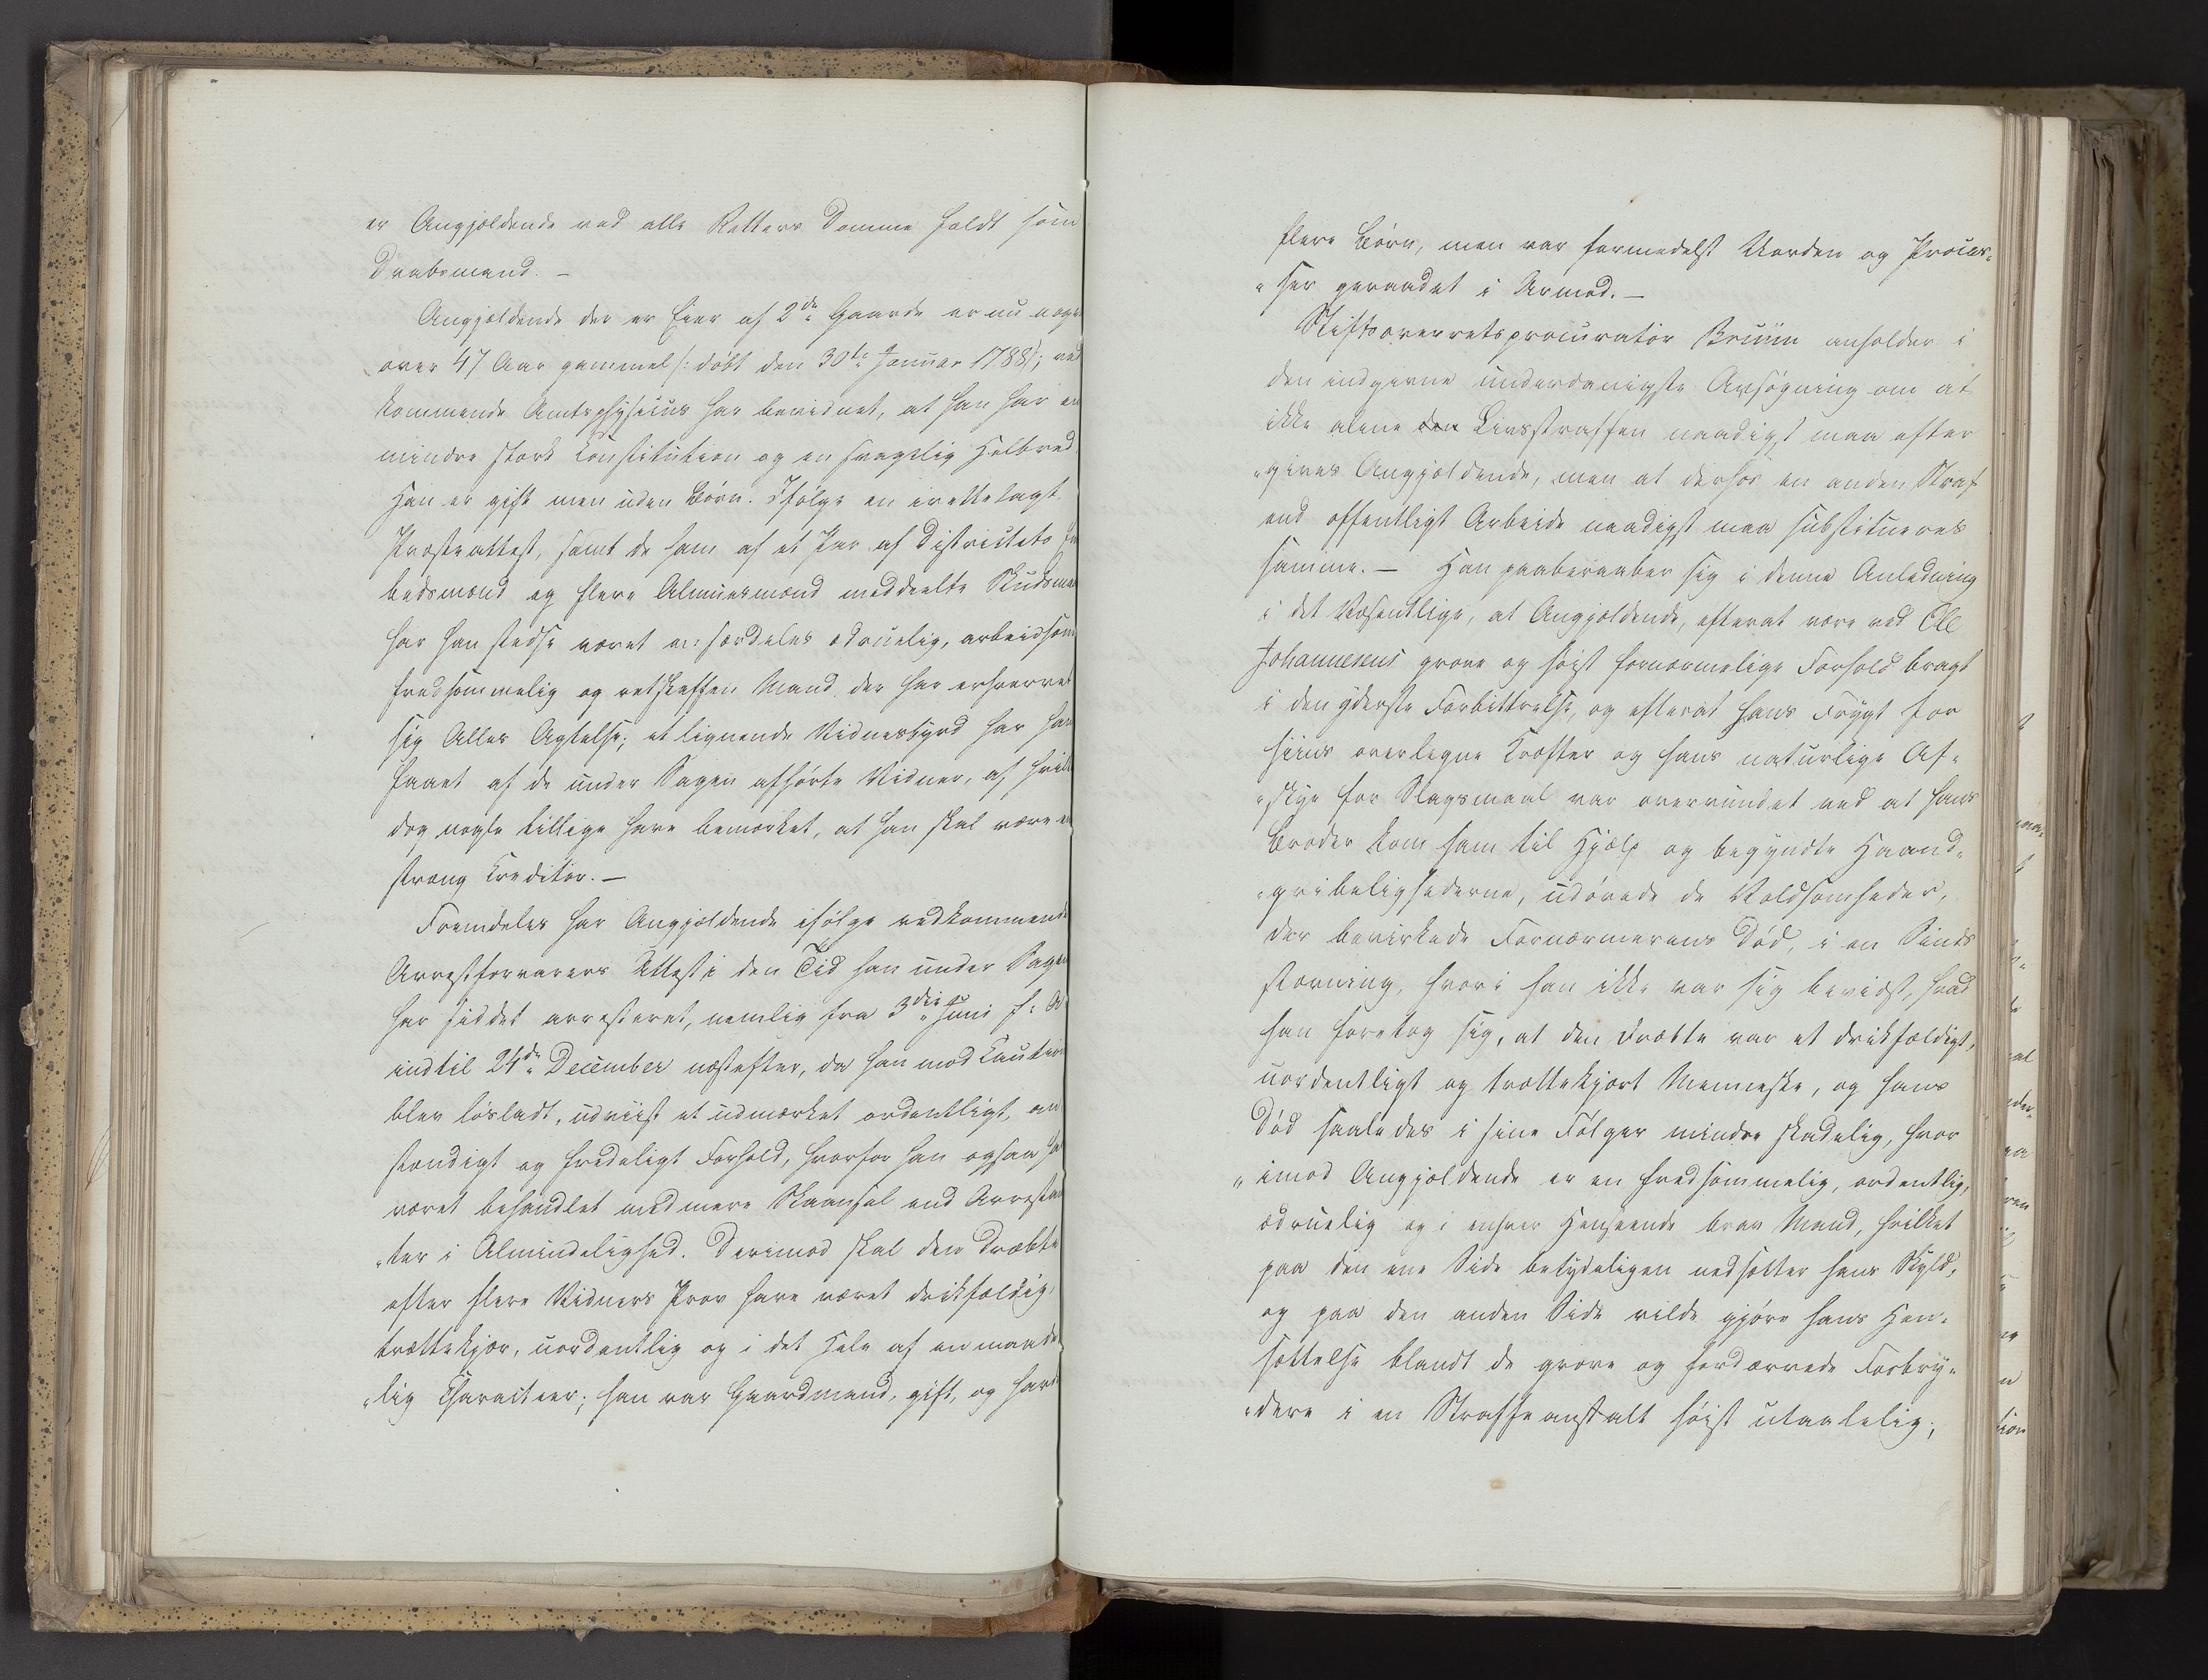 er Angjældende ved alle Retters Domme fældt som
Drabsmand. —
Angjældende der er Eier af 2de Gaarde er nu noget
over 47 Aar gammel /: døbt den 30te Januar 1788/; ved
kommende Amtsphysicus har bevidnet, at han har en
mindre stærk Constitution og en svagelig Helbred.
Han er gift men uden Børn. Ifølge en irettelagt
Præsteattest, samt de ham af et Par af Districtets
budsmænd og flere Almuesmænd meddeelte Skudsmaal
har han stedse været en særdeles ædruelig, arbeidsom
fredsommelig og retskaffen Mand, der har erhvervet
sig Alles Agtelse; et lignende Vidnesbyrd har han
faaet af de under Sagen afhørte Vidner, af hvilke
dog nogle tillige have bemærket, at han skal være en
streng Creditor. —
Fremdeles har Angjældende ifølge vedkommende
Arrestforvarers Attest i den Tid han under Sagen
har siddet arresteret, nemlig fra 3die Juni f: A
indtil 24de December næstefter, da han mod Caution
blev løsladt, udviist et udmærket ordentligt, an
stændigt og fredeligt Forhold, hvorfor han ogsaa har
været behandlet med mere Skaansel end Arrestan
„ter i Almindelighed. Derimod skal den Dræbte
efter flere Vidners Prov have været drikfældig,
trættekjær, uordentlig og i det Hele af en maade
„lig Characteer; han var Gaardmand, gift, og havde
flere Børn, men var formedelst Uorden og Proces„
„ser geraadet i Armod. —
Stiftsoverretsprocurator Bruun anholder i
den indgivne underdanigste Ansøgning om at
ikke alene den Livsstraffen naadigst maa efter
„gives Angjældende, men at derhos en anden Straf
end offentligt Arbeide naadigst maa substitueres
samme. — Han paaberaaber sig i denne Anledning
i det Væsentlige, at Angjældende, efterat være ved Ole
Johannesens grove og høist fornærmelige Forhold bragt
i den yderste Forbittrelse, og efterat hans Frygt for
hiins overlegne Kræfter og hans naturlige Af„
„skye for Slagsmaal var overvundet ved at hans
Broder kom ham til Hjælp og begyndte Haand„
„gribelighederne, udøvede de Voldsomheder,
der bevirkede Fornærmerens Død, i en Sinds
stemning, hvori han ikke var sig bevidst, hvad
han foretog sig, at den Dræbte var et drikfældigt,
uordentligt og trættekjært Menneske, og hans
Død saaledes i sine Følger mindre skadelig, hvor
„imod Angjældende er en fredsommelig, ordentlig,
ædruelig og i enhver Henseende brav Mand, hvilket
paa den ene Side betydeligen nedsætter hans Skyld,
og paa den anden Side vilde gjøre hans Hen„
sættelse blandt de grove og fordærvede Forbry„
„dere i en Straffeanstalt høist utaalelig;